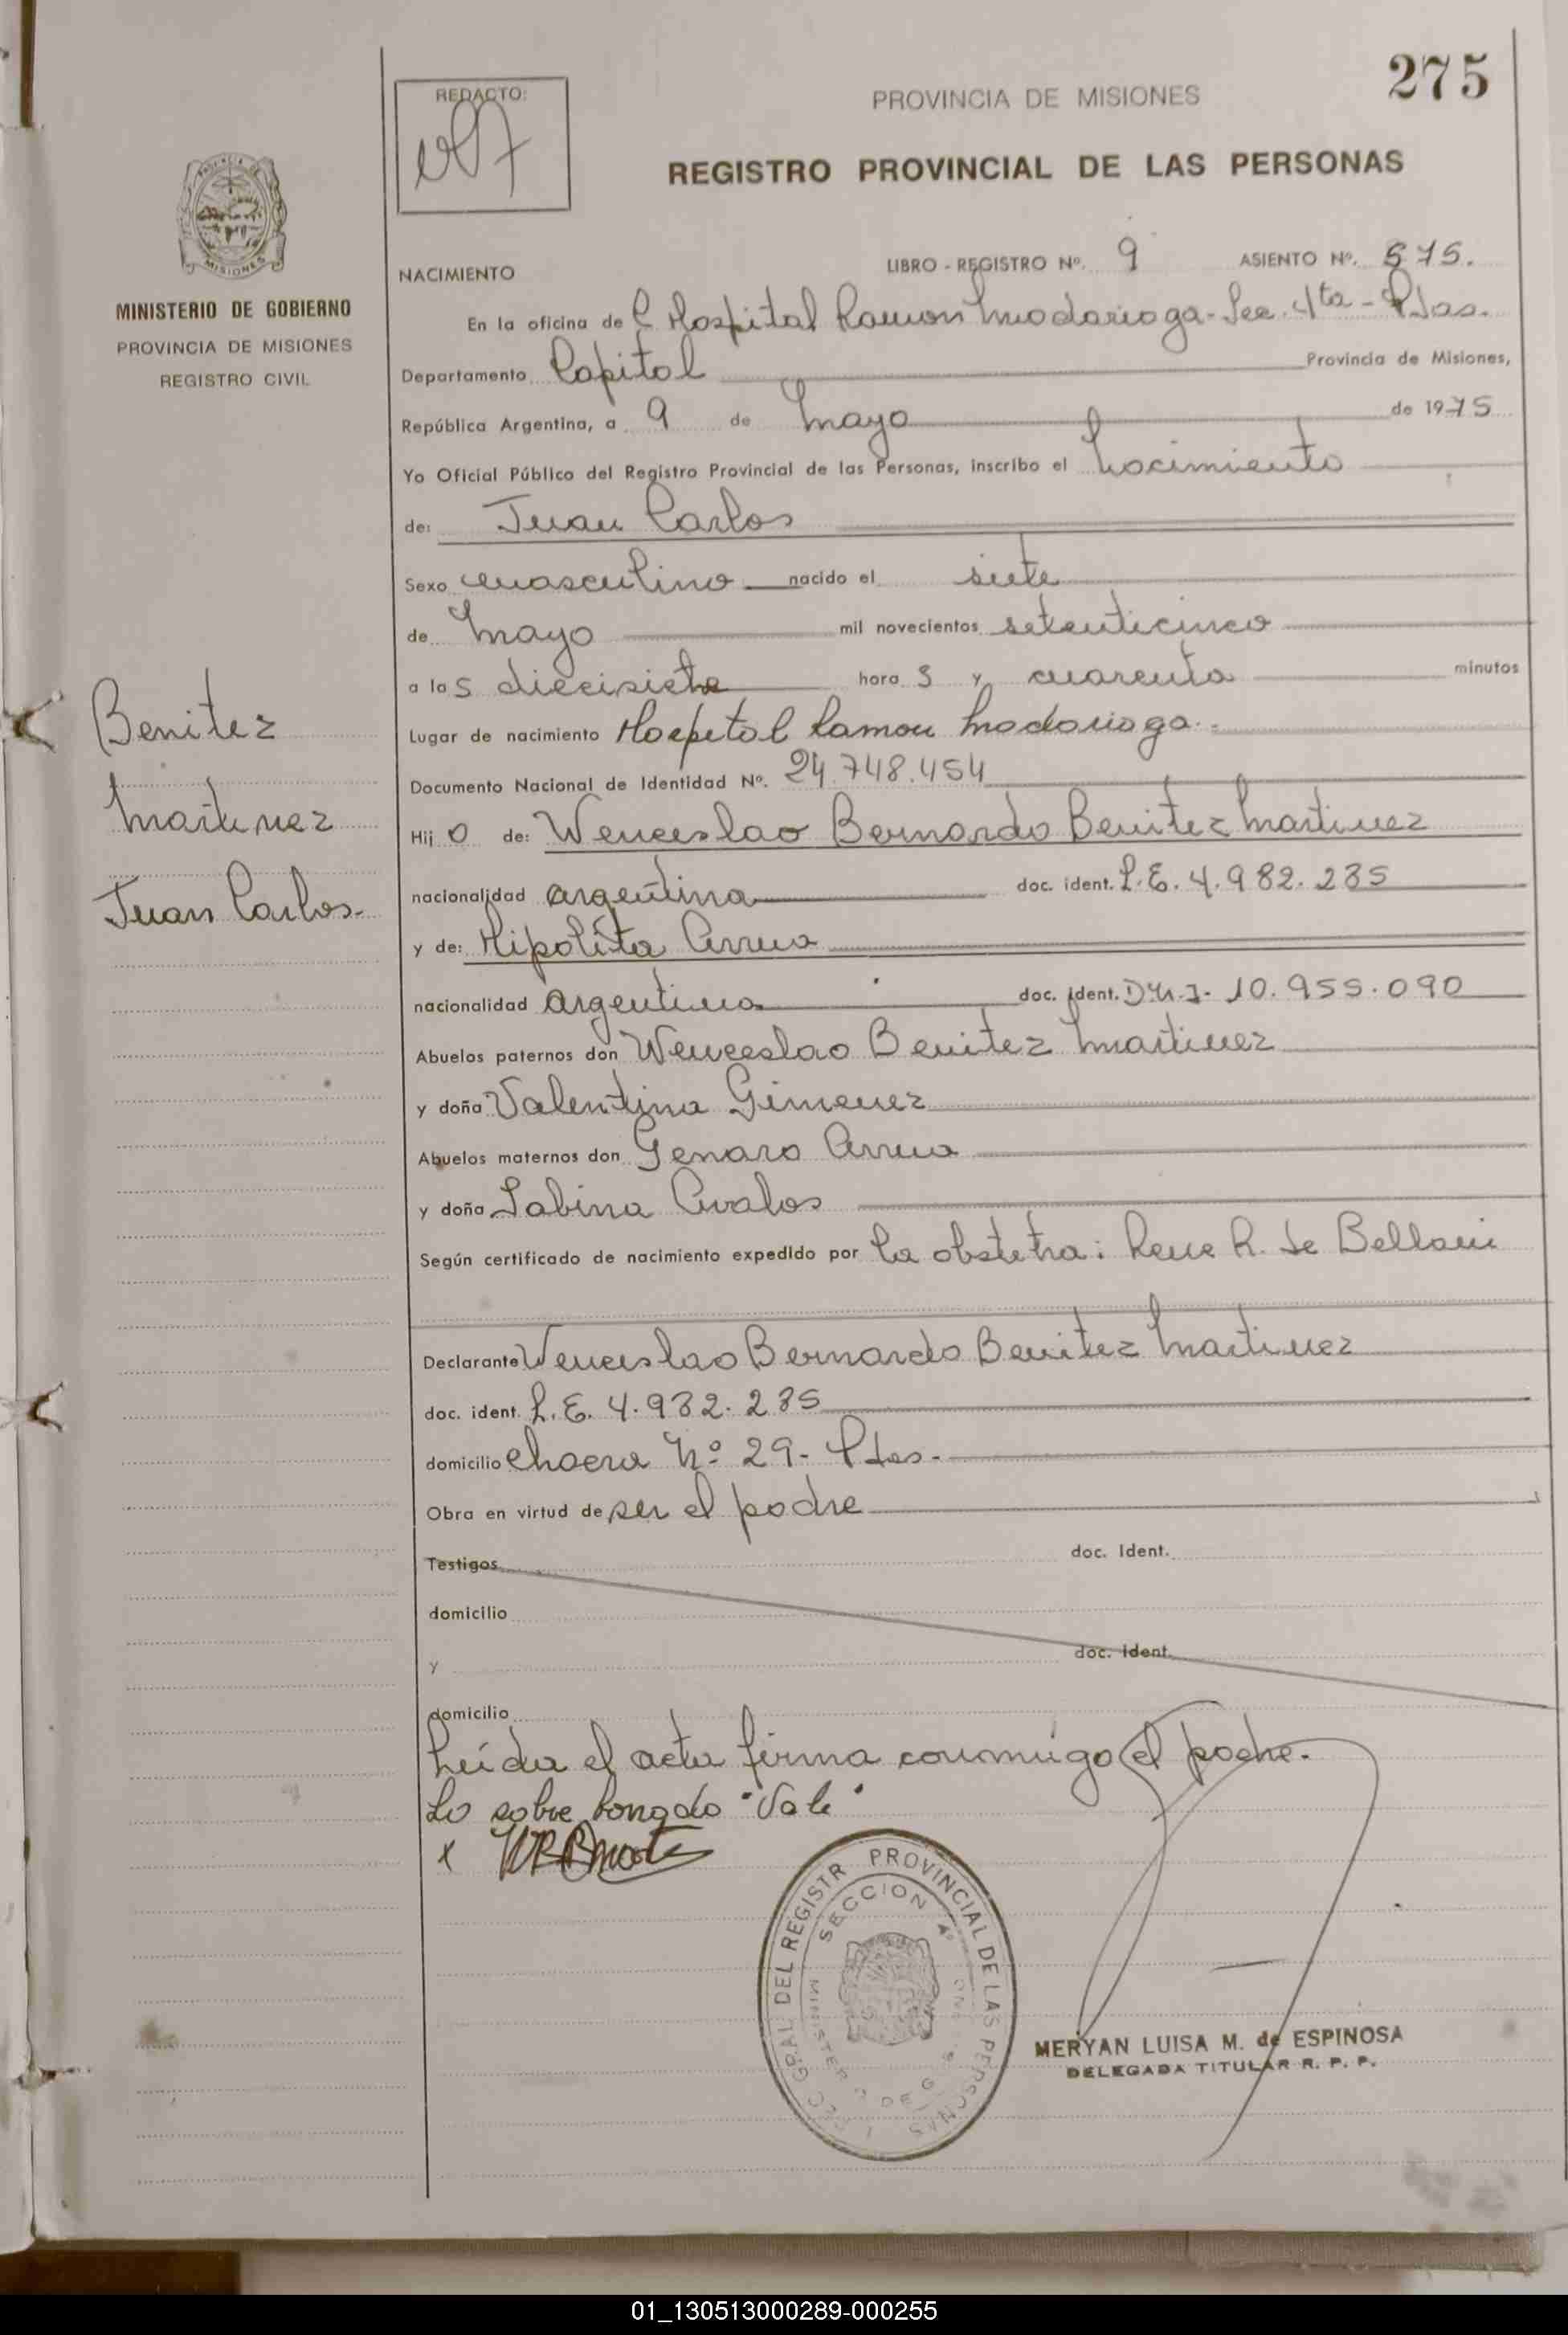 275
REDACTO:
PROVINCIA DE MISIONES
REGISTRO PROVINCIAL DE LAS PERSONAS
MISIONES
MINISTERIO DE GOBIERNO
PROVINCIA DE MISIONES
REGISTRO CIVIL
NACIMIENTO
LIBRO - REGISTRO Nº. 9 ASIENTO Nº. 575.
En la oficina de Hospital Ramon Madariaga - Sec. 4ta - Pdas.
Departamento Capital Provincia de Misiones,
República Argentina, a 9 de Mayo de 1975
Yo Oficial Público del Registro Provincial de las Personas, inscribo el Nacimiento
de: Juan Carlos
Sexo masculino nacido el siete
de Mayo mil novecientos setenticinco
a las diecisiete hora s y cuarenta minutos
Lugar de nacimiento Hospital Ramon Madariaga.
Documento Nacional de Identidad Nº. 24.748.454
Hij o de: Wenceslao Bernardo Benitez Martinez
nacionalidad argentina doc. ident. L.E. 4.982.285
y de: Hipolita Arrua
nacionalidad argentina doc. ident. D.N.I. 10.955.090
Abuelos paternos don Wenceslao Benitez Martinez
y doña Valentina Gimenez
Abuelos maternos don Genaro Arrua
y doña Sabina Avalos
Según certificado de nacimiento expedido por la obstetra: Rene R. de
Declarante Wenceslao Bernardo Benitez Martinez
doc. ident. L.E. 4.982.285
domicilio chacra Nº 29 - Pdas.
Obra en virtud de ser el padre
Testigos doc. Ident.
domicilio
y doc. ident.
domicilio
Leída el acta firma conmigo el padre.
Lo sobre "Vale"
x
Benitez
Martinez
Juan Carlos.
GRAL DEL REGISTR PROVINCIAL DE LAS PERSONAS
SECCION 4º
MERYAN LUISA M. de ESPINOSA
DELEGADA TITULAR R. P. P.
01_130513000289-000255